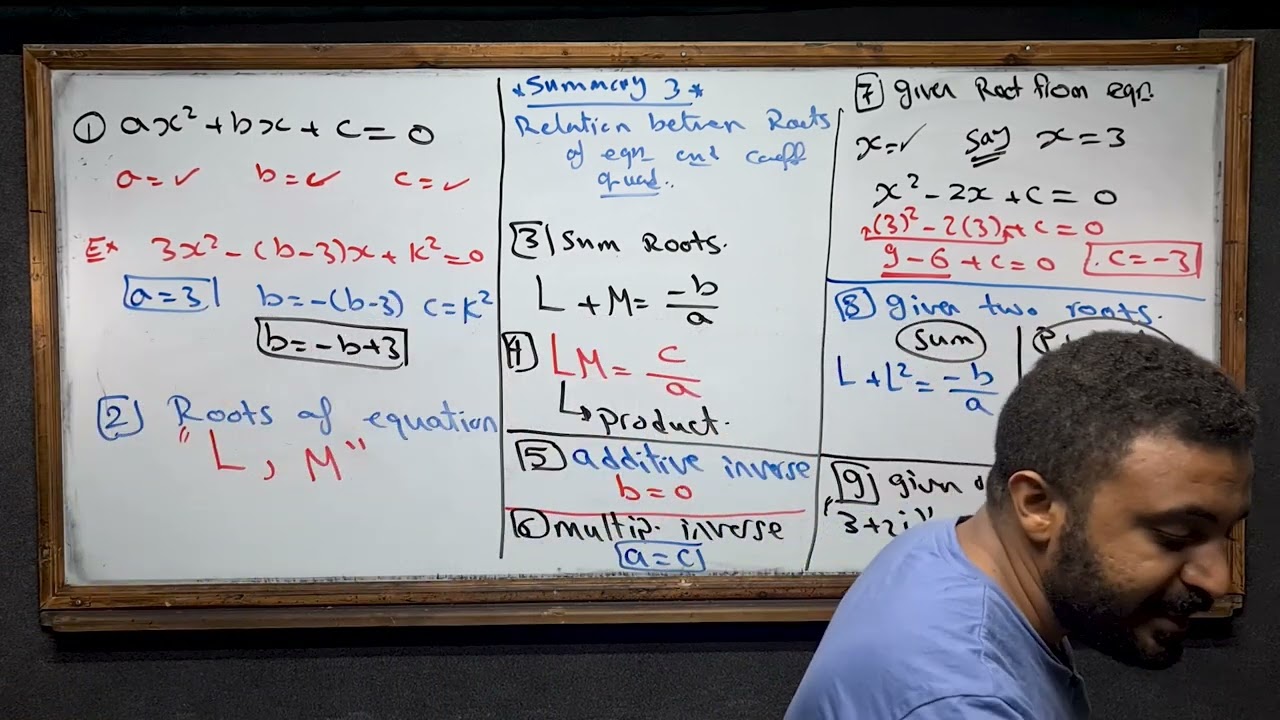 ① ax² + bx + c = 0
a = ✓ b = ✓ c = ✓
Ex 3x² - (b-3)x + k² = 0
a = 3 b = -(b-3) c = k²
b = -b+3
2 Roots of equation
"L, M"
*Summary 3*
Relation betwen Roots
of eqn and coeff
quad..
3 Sum Roots.
L + M = -b/a
4 LM = c/a
↳ product.
5 additive inverse
b = 0
6 multip. inverse
a = c
7 given Root from eqn.
x = ✓ say x = 3
x² - 2x + c = 0
(3)² - 2(3) + c = 0
9 - 6 + c = 0 c = -3
8 given two roots.
Sum
L + L² = -b/a
9 given
"3+2i"